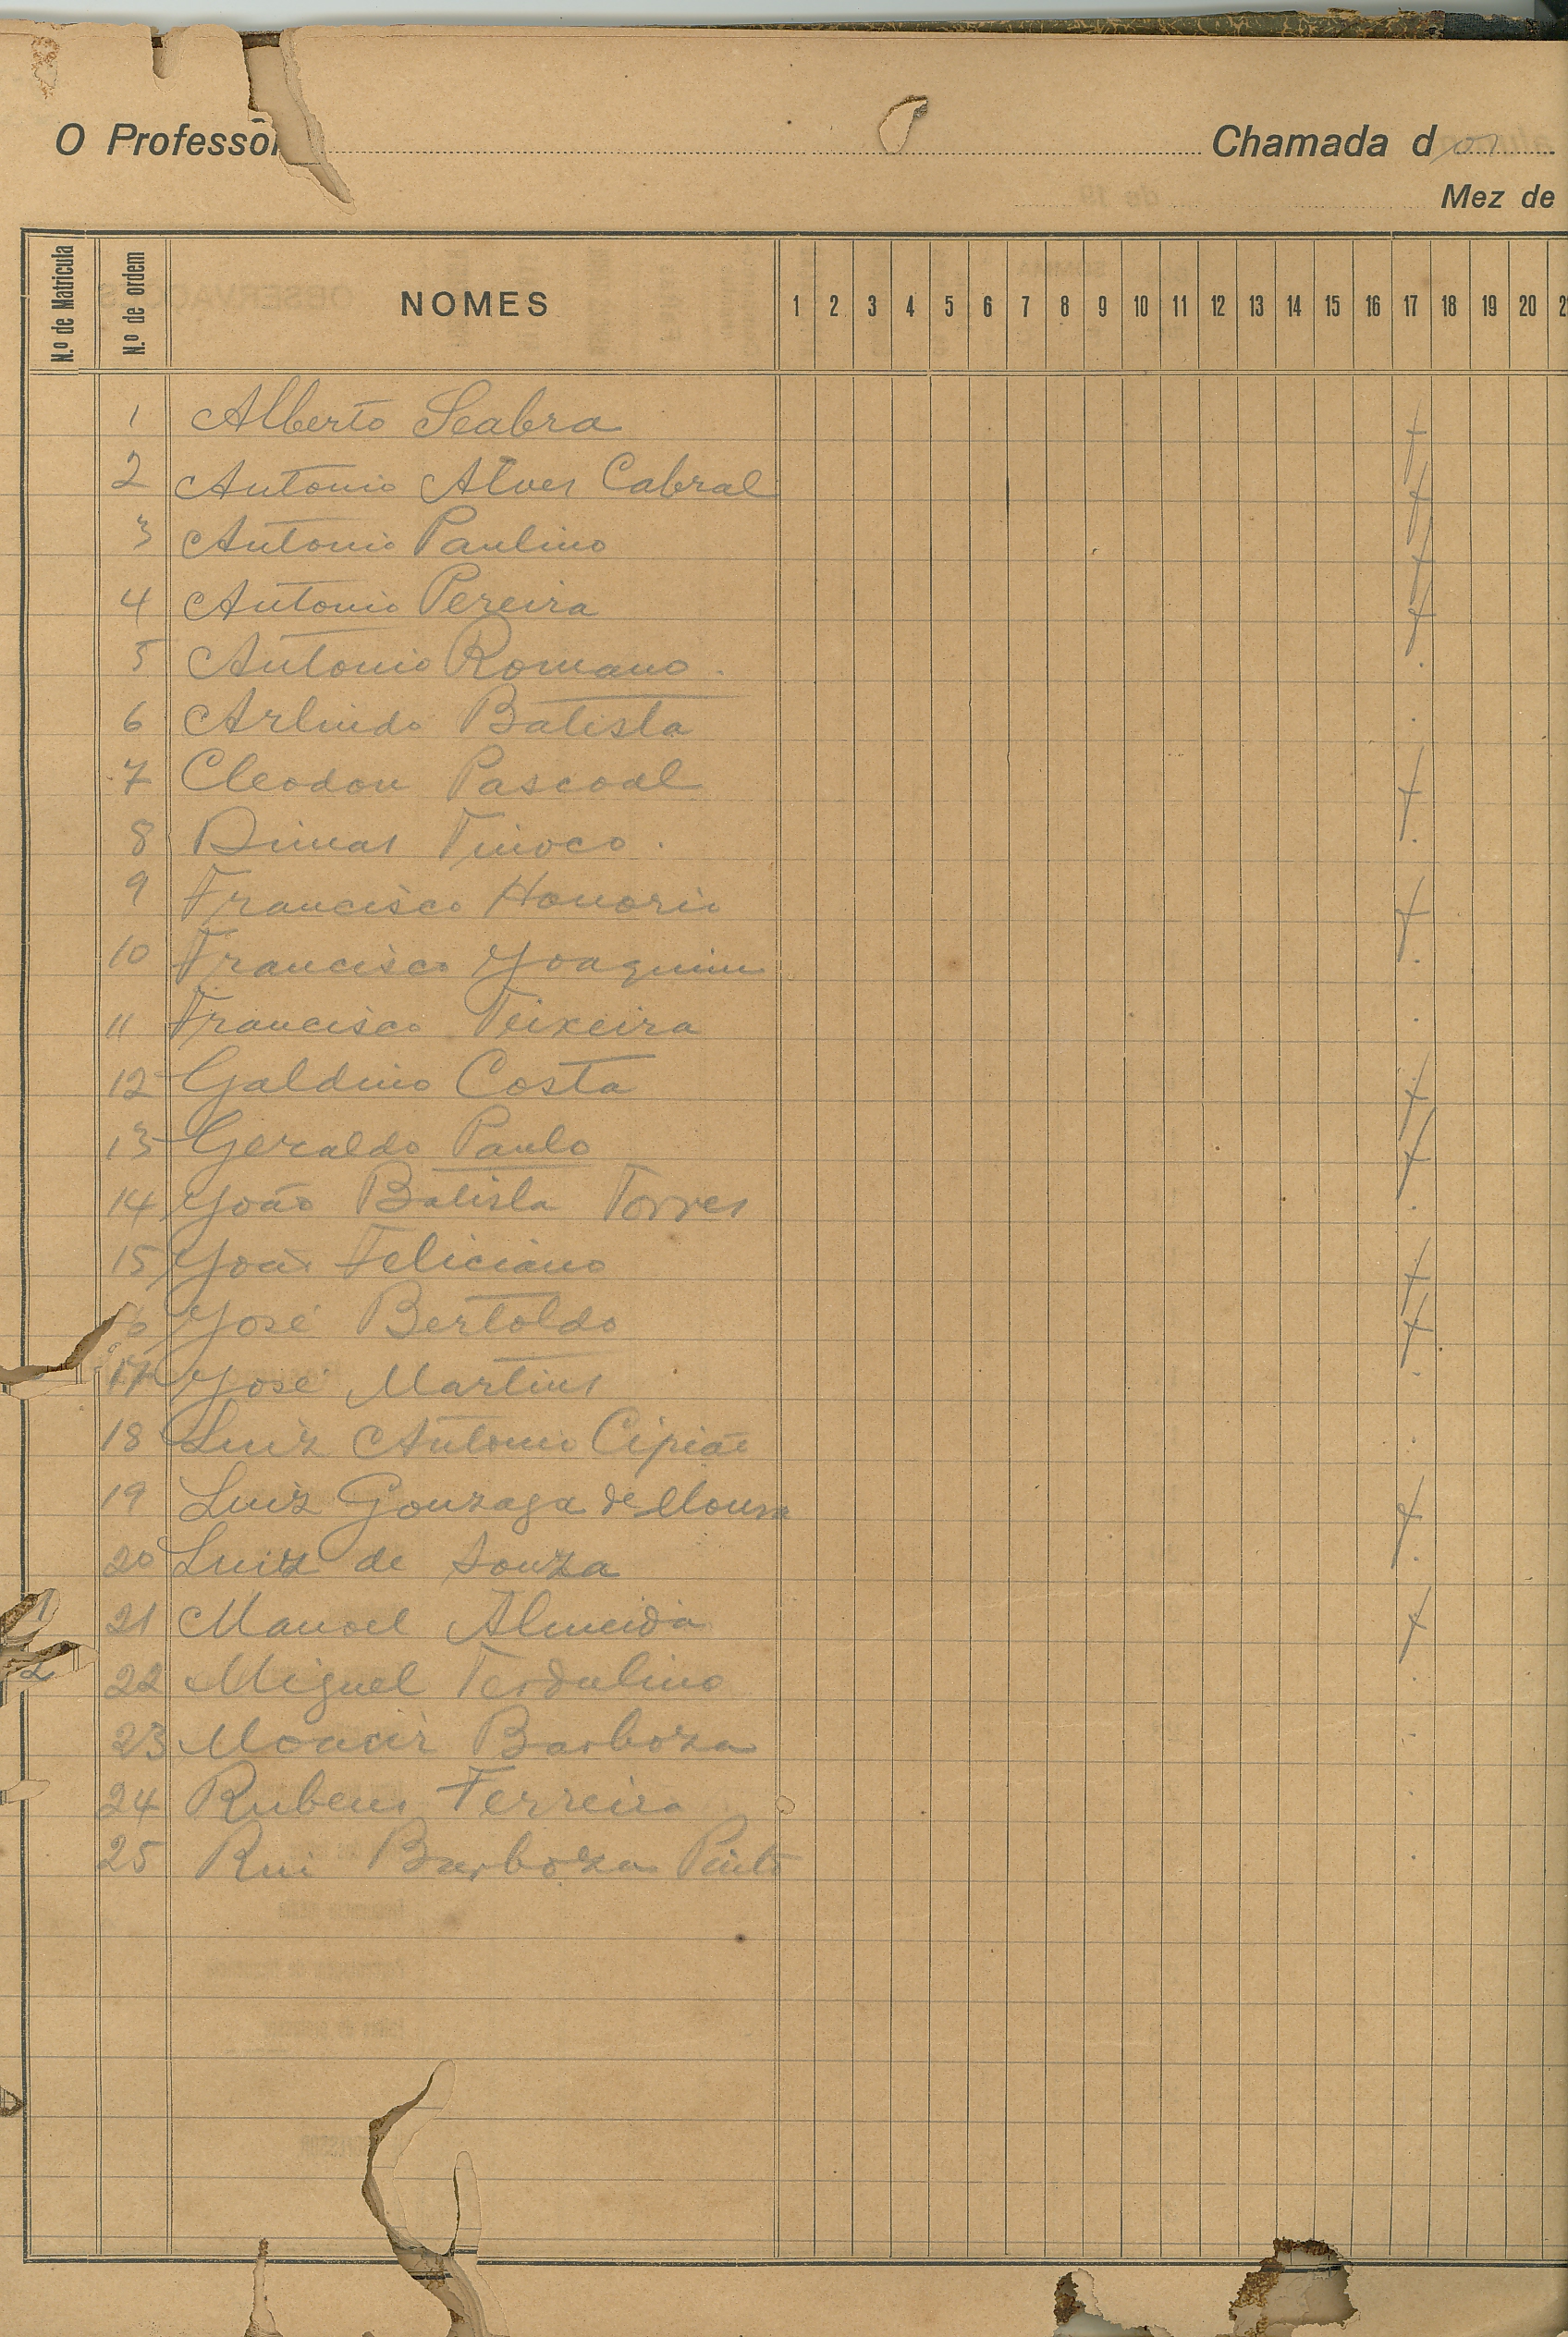 O Professôr Chamada dos
Mez de
N.º de Matricula N.º de ordem NOMES 1 2 3 4 5 6 7 8 9 10 11 12 13 14 15 16 17 18 19 20
1 Alberto Seabra f
2 Antonio Alves Cabral f
3 Antonio Paulino f
4 Antonio Pereira f
5 Antonio Romano . .
6 Arlindo Batista .
7 Cleodon Pascoal f
8 Dimas Tinoco . .
9 Francisco Honorio f
10 Francisco Joaquim .
11 Francisco Teixeira .
12 Galdino Costa f
13 Geraldo Paulo f
14 João Batista Torres .
15 João Feliciano f
16 José Bertoldo f
17 José Martins .
18 Luiz Antonio Cipião .
19 Luiz Gonzaga de Moura f
20 Luiz de Souza .
21 Manoel Almeida f
22 Miguel Terdulino .
23 Moacir Barboza .
24 Rubens Ferreira .
25 Rui Barboza Pinto .